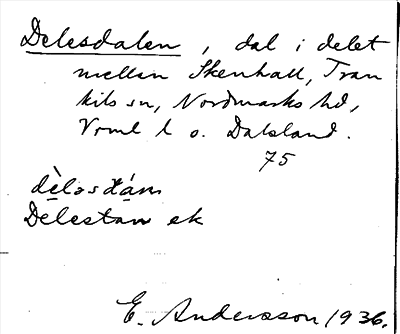 Delesdalen, dal i delet
mellan Skenhall, Tran
kils sn, Nordmarks hd,
Vrml l o. Dalsland.
75
dèləsdám
Delestan ek
E. Andersson 1936.